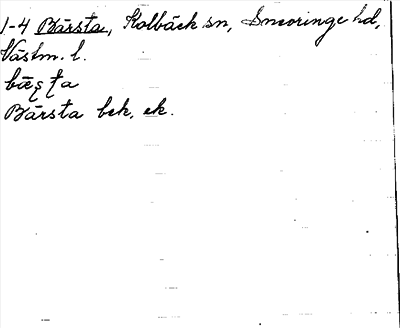 1-4 Bärsta, Kolbäck sn, Snevringe hd,
Västm. l.
Bärsta bek, ek.